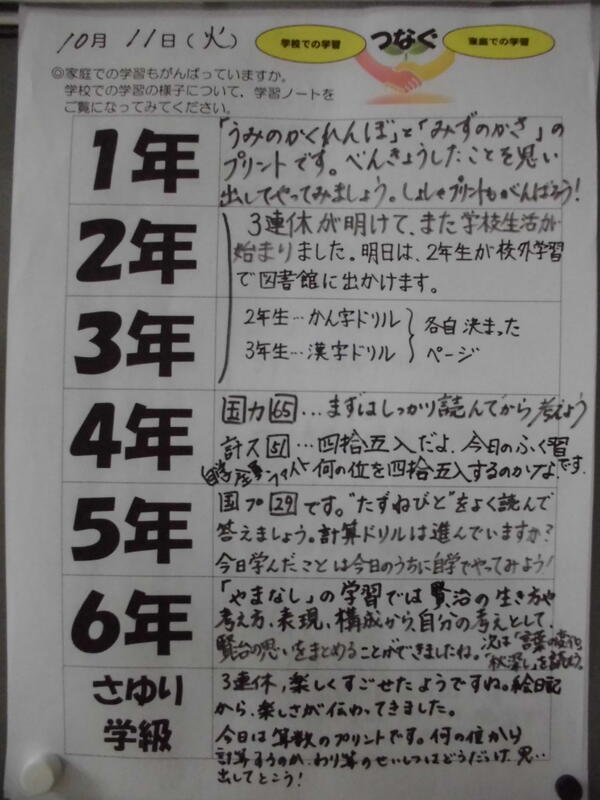 10月 11日(火) 学校での学習 つなぐ 家庭での学習
◎家庭での学習もがんばっていますか。
学校での学習の様子について、学習ノートを
ご覧になってみてください。
1年
「うみのかくれんぼ」と「みずのかさ」の
プリントです。べんきょうしたことを思い
出してやってみましょう。しょしゃプリントもがんばろう!
2年
3連休が明けて、また学校生活が
始まりました。明日は、2年生が校外学習
で図書館に出かけます。
3年
2年生…かん字ドリル
3年生…漢字ドリル
各自決まった
ページ
4年
国力65…まずはしっかり読んでから考えよう
計ス51…四捨五入だよ。今日のふく習です。
何の位を四捨五入するのかな
5年
国プ29です。"たずねびと"をよく読んで
答えましょう。計算ドリルは進んでいますか?
今日学んだことは今日のうちに自学でやってみよう!
6年
「やまなし」の学習では賢治の生き方や
考え方、表現、構成から、自分の考えとして、
賢治の思いをまとめることができましたね。
次は「言葉の変化」
「秋深し」を読もう。
さゆり
学級
3連休、楽しくすごせたようですね。絵日記
から、楽しさが伝わってきました。
今日は算数のプリントです。何の位から
計算するのか、わり算のせいしつはどうだっけ、思…
出してとこう!